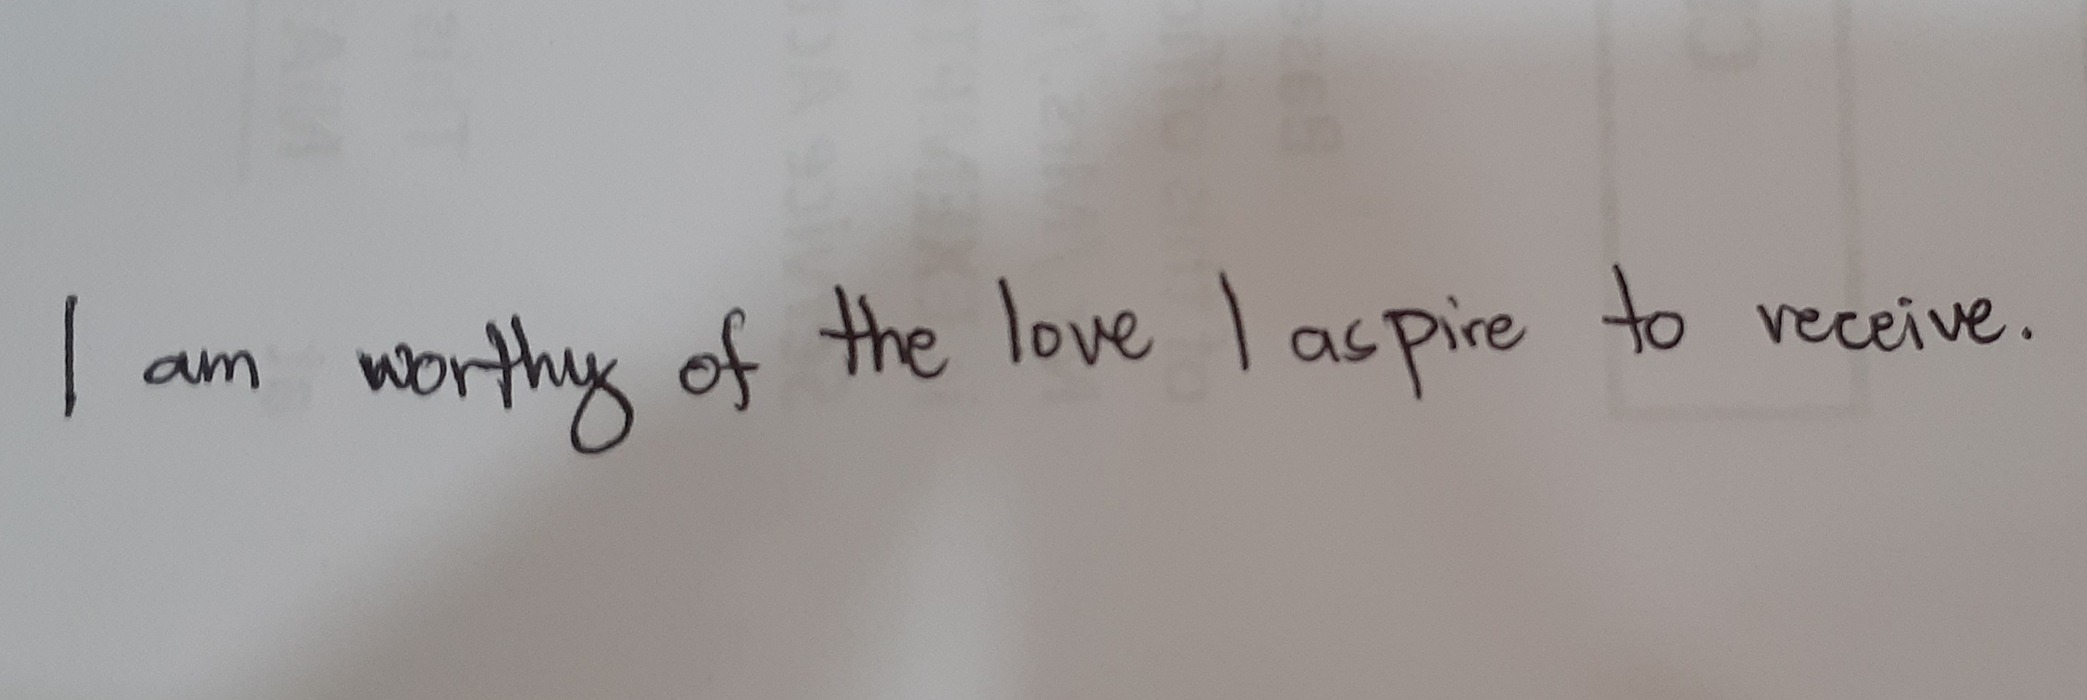 I am worthy of the love I aspire to receive.